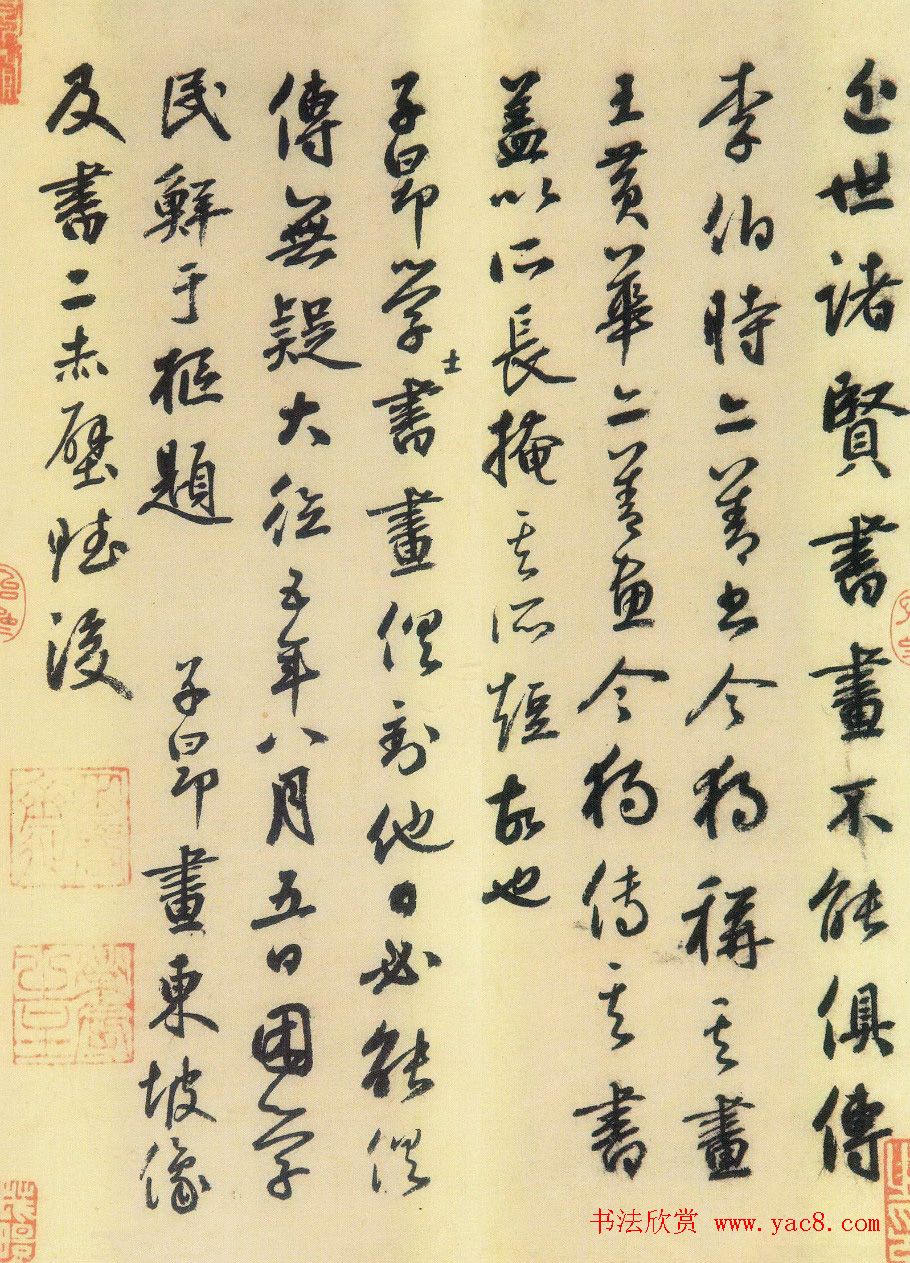 近世諸賢書畫不能俱傳
李伯時亦善書今獨稱其畫
王黄華亦善畫今獨傳其書
蓋以所長掩其所短故也
子昂学士書畫俱到他日必能俱
傳無疑大德五年八月五日困学
民鮮于樞題 子昂畫東坡像
及書二赤壁賦後
书法欣赏 www.yac8.com